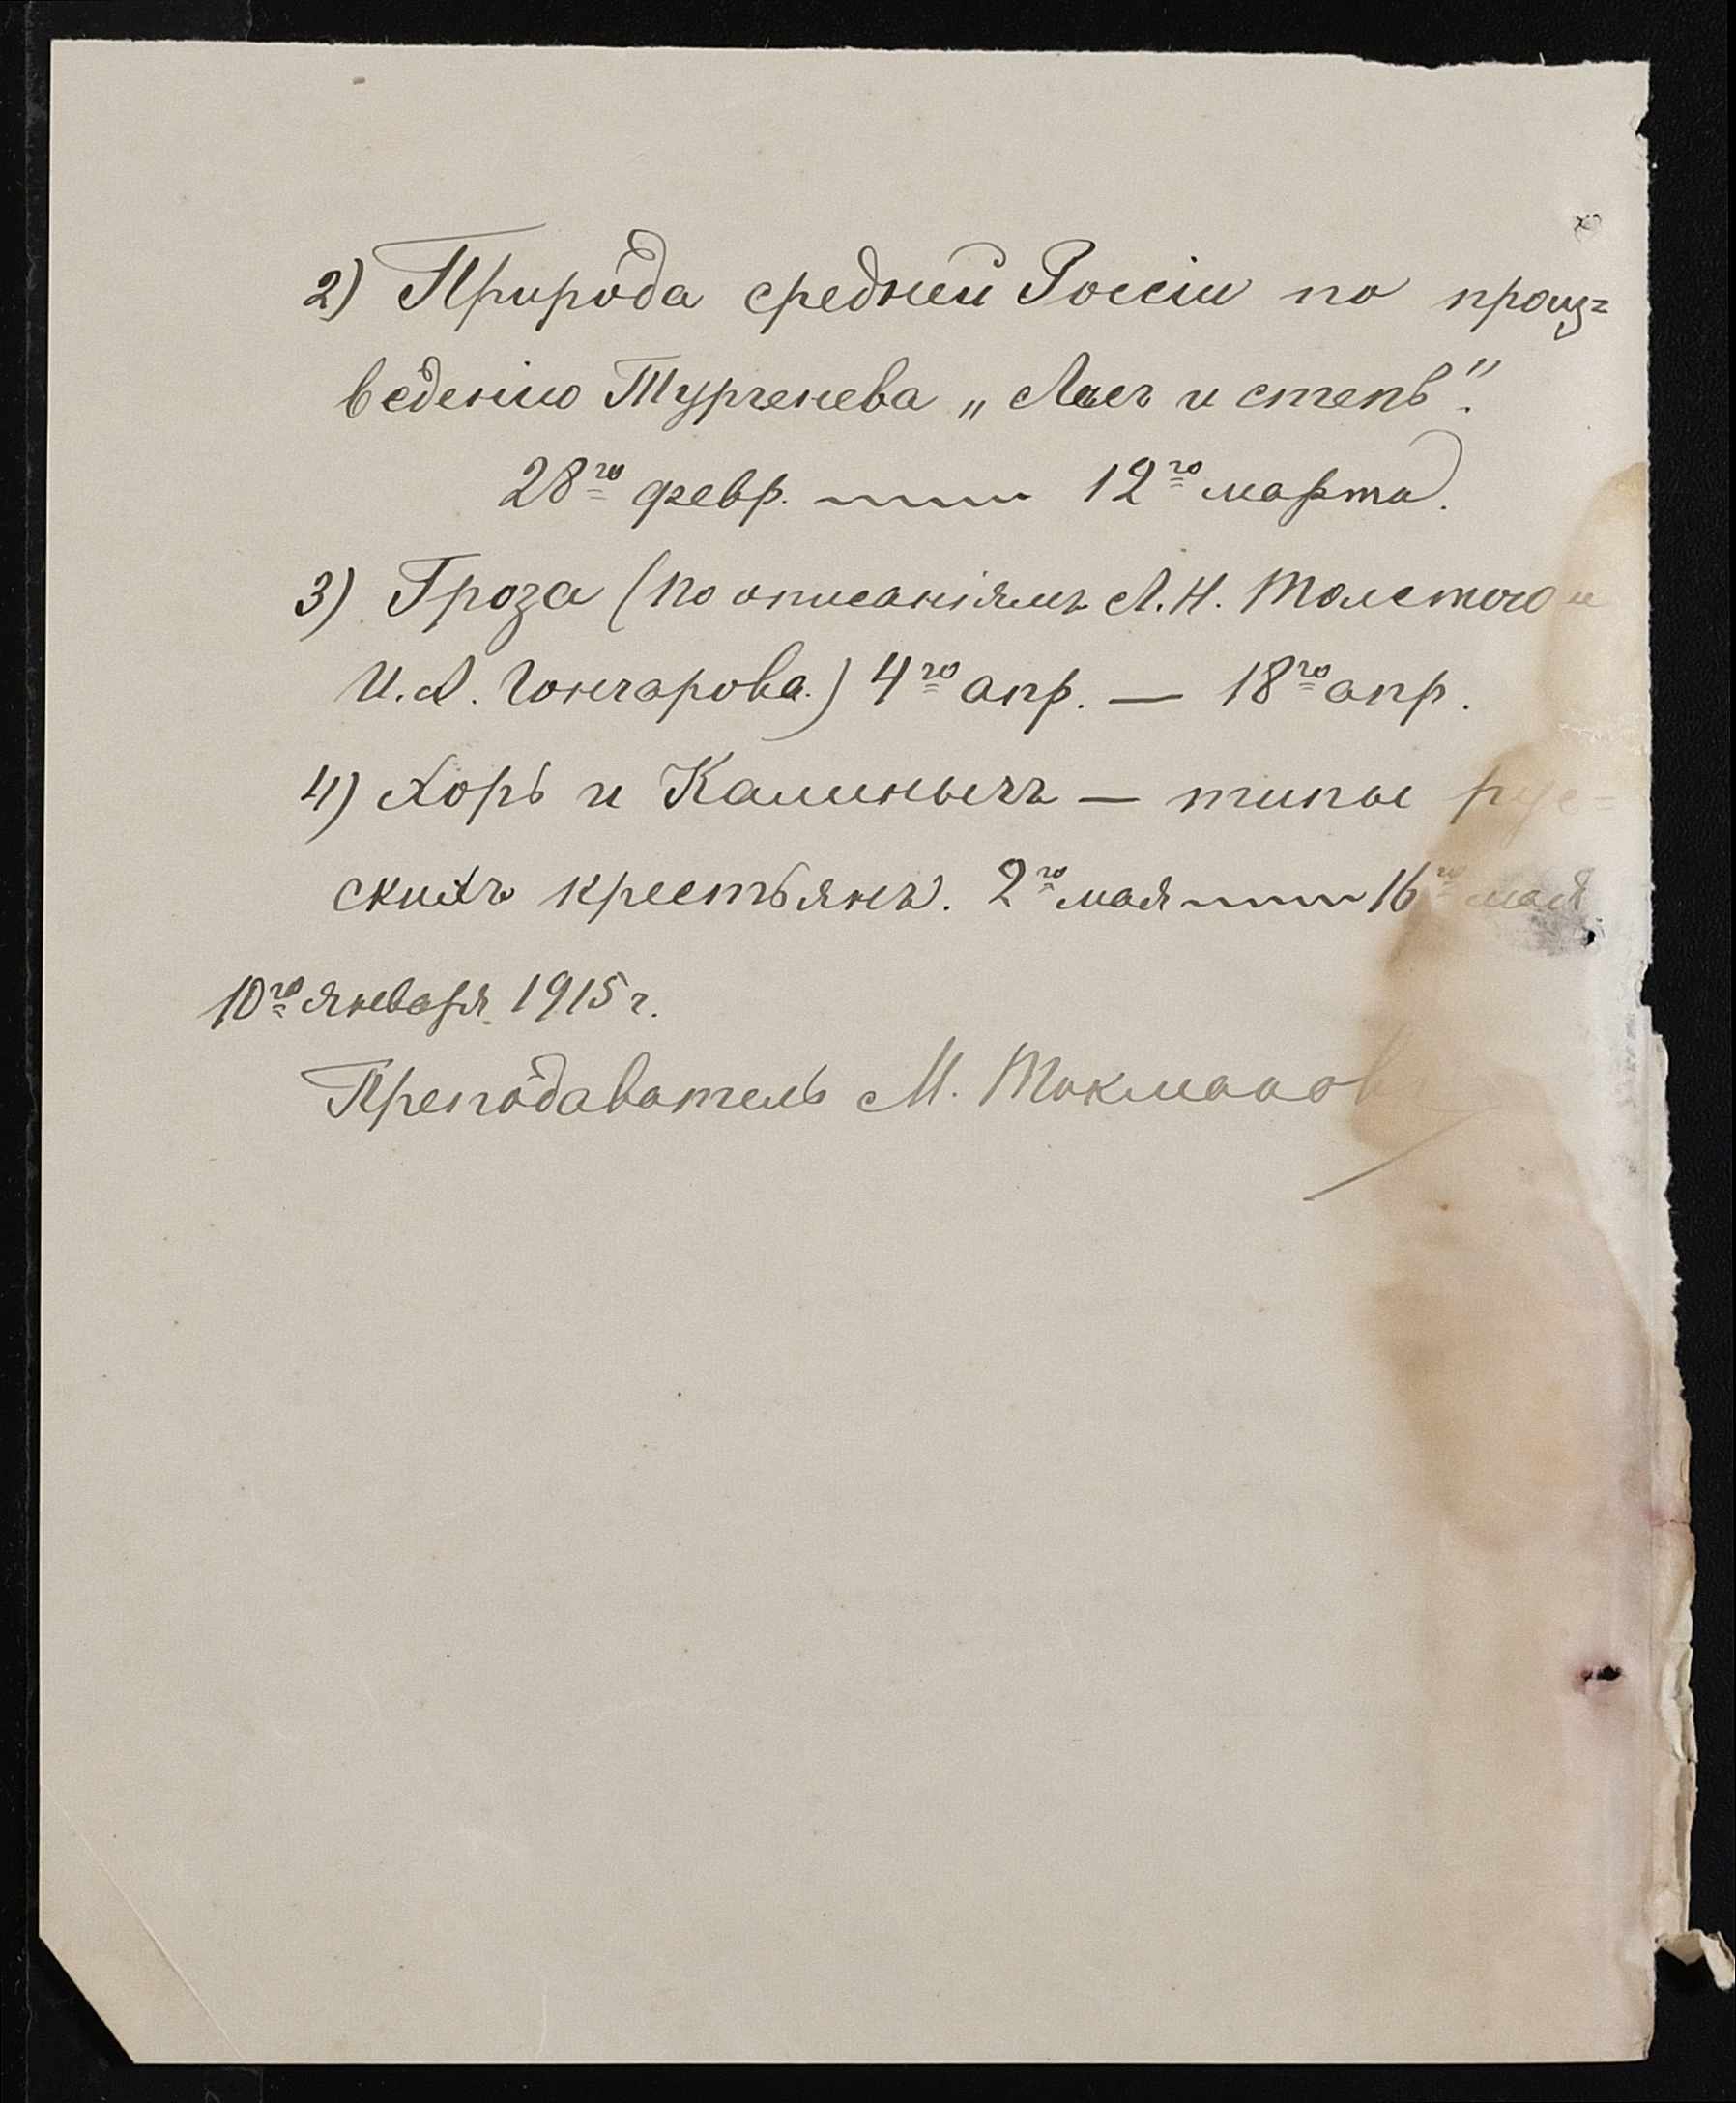 2) Природа средней Россiи по произ=
веденiю Тургенева „Лѣсъ и степь".
28го февр. — 12го марта.
3) Гроза (по описанiямъ Л.Н. Толстого и
И.А. Гончарова.) 4го апр. — 18го апр.
4) Хорь и Калинычъ — типы рус=
скихъ крестьянъ. 2го мая — 16го мая.
10го января 1915 г.
Преподаватель М.